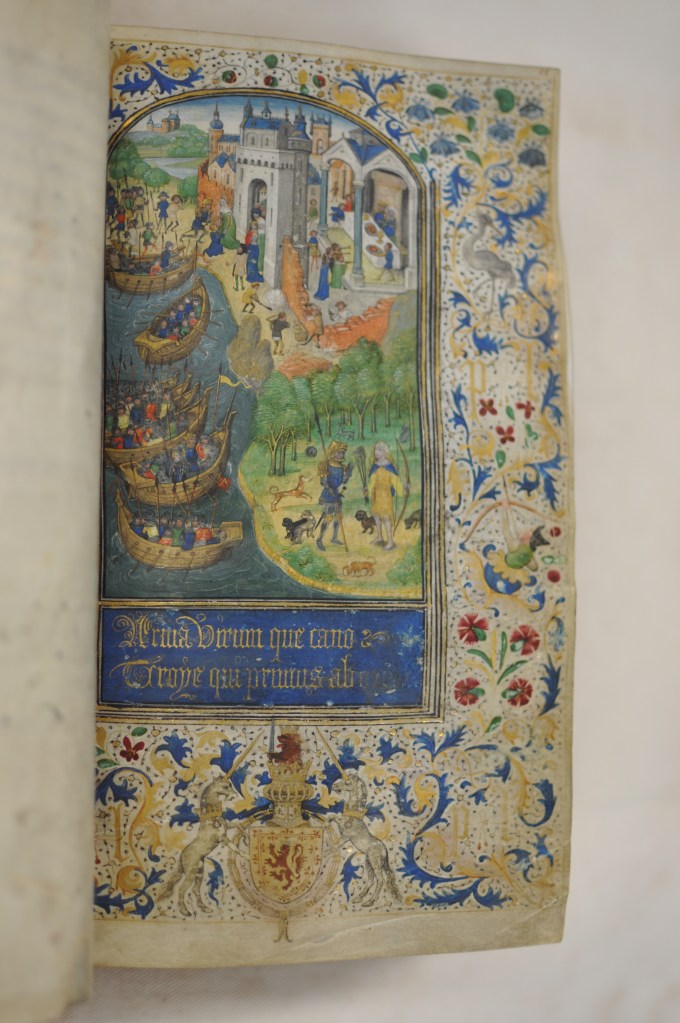 Arma Virum que cano
Troye qui primus ab